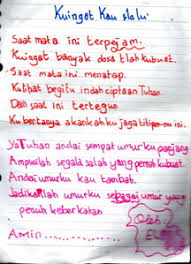 Kuingat Kau slalu
Saat mata ini terpejam.
Kuingat banyak dosa tlah kubuat.
Saat mata ini menatap.
Kulihat begitu indah ciptaan Tuhan.
Dan saat ini tertegun
Ku bertanya akankah ku jaga titipan-mu ini.
Ya Tuhan andai semqat umurku panjang
Ampunilah segala salah yang pernah kubuat.
Andai umurku kau tambah.
Jadikanlah umurku sebagai umur yang
penuh keberkahan
Amin
Oleh